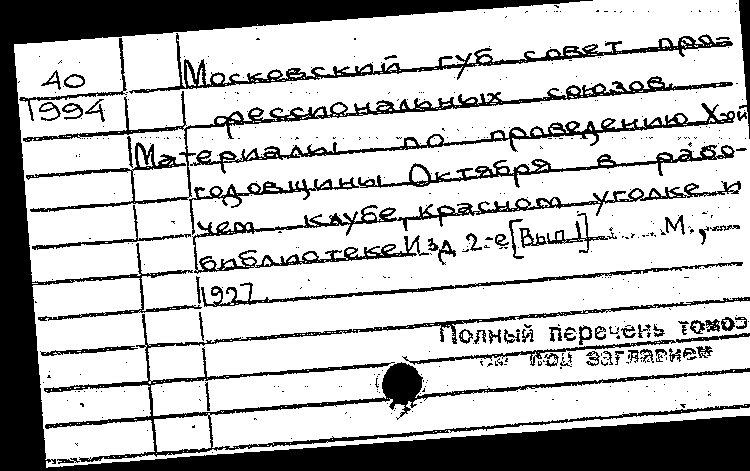 40
1994
Московский губ совет про-
фессиональных союзов.
Материалы по проведению X-ой
годовщины Октября в рабо-
чем клубе, красном уголке и
библиотеке. Изд 2-е [Вып 1] М.,
1927.
Полный перечень томов
см под заглавием